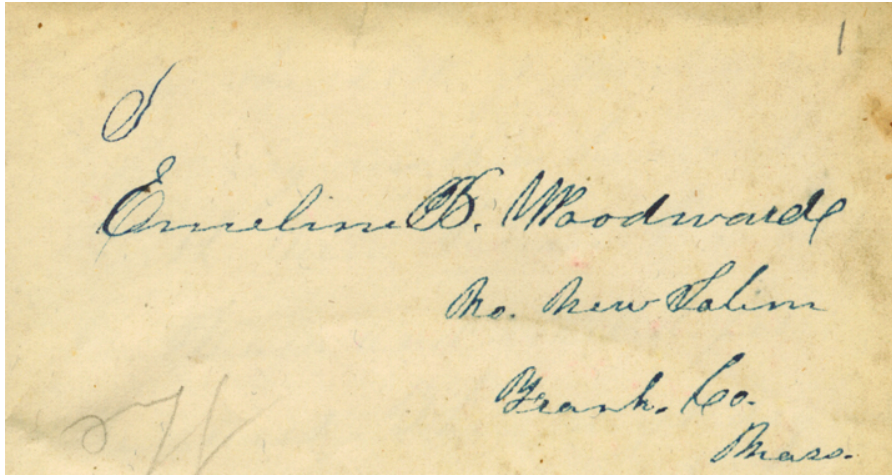 1
Emeline B. Woodward
No. New Salem
Frank. Co.
Mass.